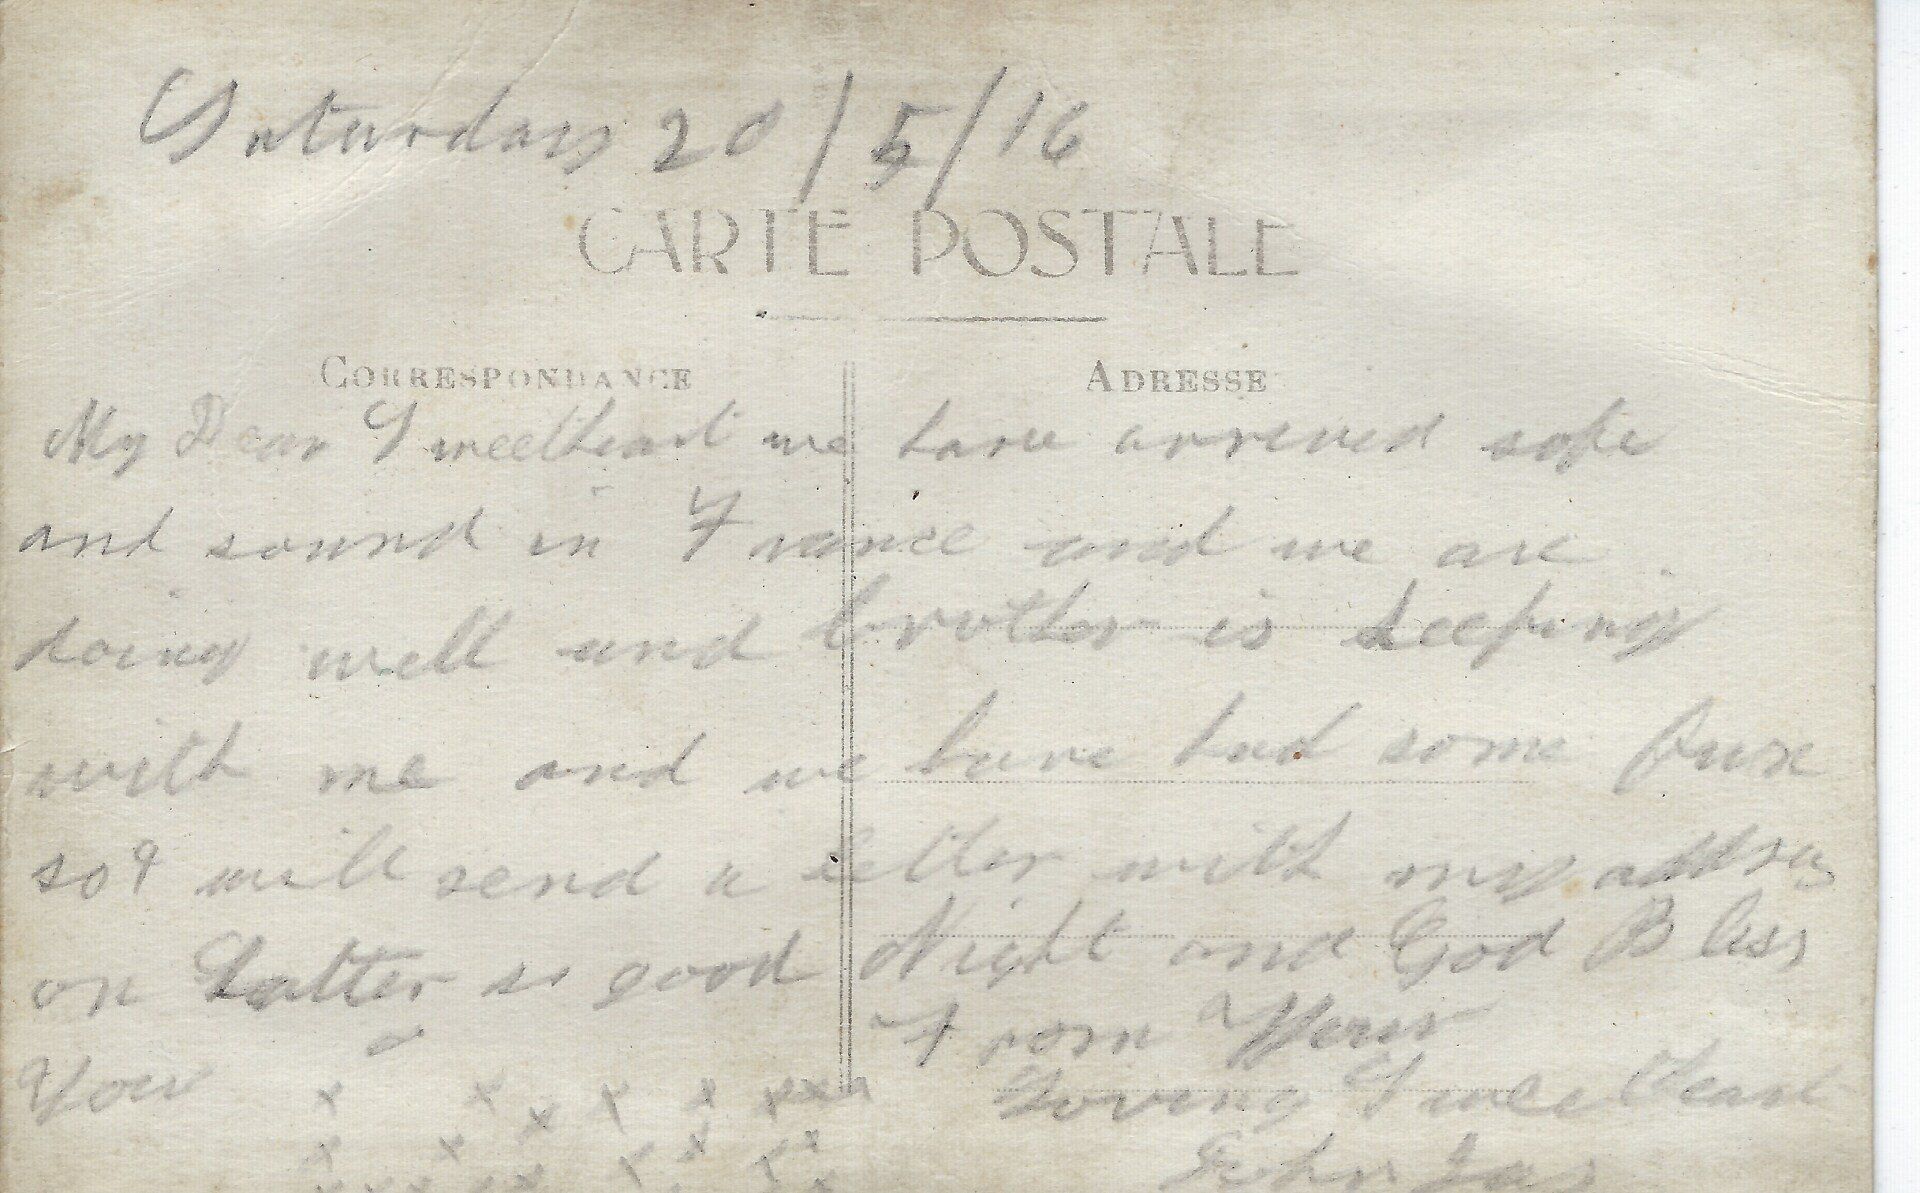 Saturday 20/5/16
CARTE POSTALE
CORRESPONDANCE
ADRESSE
My Dear Sweetheart we have arrived safe
and sound in France and we are
doing well and brother is keeping
with me and we have had some fun
so I will send a letter with my address
on Latter so good Night and God Bless
You
From Your
Loving Sweetheart
John
x x x x x x x
x x x x x x